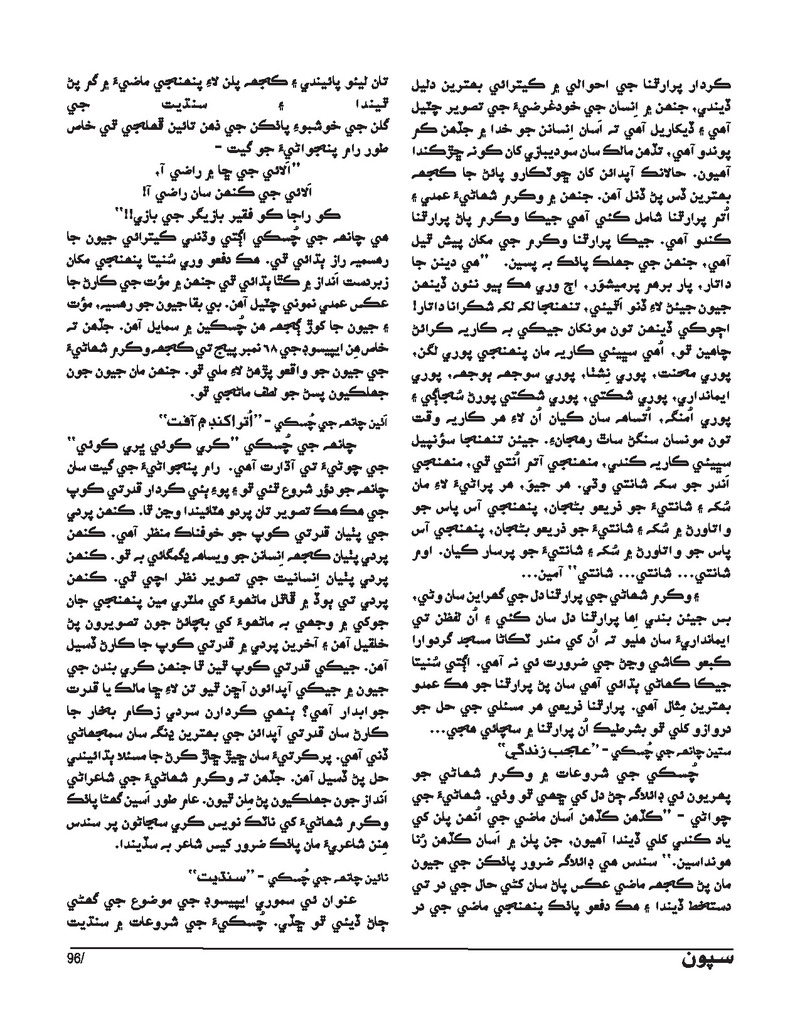 ڪردار پرارٿنا جي احوالي ۾ ڪيترائي بهترين دليل
ڏيندي، جنهن ۾ اِنسان جي خودغرضيءَ جي تصوير چٽيل
آهي ۽ ڏيکاريل آهي ته اَسان اِنسانن جو خدا ۾ جڏهن ڪم
پوندو آهي، تڏهن مالڪ سان سوديبازي کان ڪونه ڇڙڪندا
آهيون. حالانڪ آپدائن کان ڇوٽڪارو پائڻ جا ڪجهه
بهترين ڏس پڻ ڏنل آهن. جنهن ۾ وڪرم شهاڻيءَ عملي ۽
اُتم پرارٿنا شامل ڪئي آهي جيڪا وڪرم پاڻ پرارٿنا
ڪندو آهي. جيڪا پرارٿنا وڪرم جي مکان پيش ٿيل
آهي، جنهن جي جهلڪ پائڪ به پسين. ”هي دينن جا
داتار، پار برهم پرميشوَر، اڄ وري هڪ ٻيو نئون ڏينهن
جيون جيئڻ لاءِ ڏنو اٿيئي، تنهنجا لک لک شڪرانا داتار!
اڄوڪي ڏينهن تون مونکان جيڪي به ڪاريه ڪرائڻ
چاهين ٿو، اُهي سڀيئي ڪاريه مان پنهنجي پوري لگن،
پوري محنت، پوري نِشٺا، پوري سوجهه ٻوجهه، پوري
ايمانداري، پوري شڪتي، پوري شڪتي پورڻ سُڃاڳي ۽
پوري اُمنگه، اُتساهه سان ڪيان اُن لاءِ هر ڪاريه وقت
تون مونسان سنگڻ ساٿ رهجانءِ. جيئن تنهنجا سؤنپيل
سڀيئي ڪاريه ڪندي، منهنجي آتم اُنتي ٿي، منهنجي
اَندر جو سک شانتي وڌي. هر جيوَ، هر پراڻيءَ لاءِ مان
سُک ۽ شانتيءَ جو ذريعو بڻجان، پنهنجي آس پاس جو
واتاورڻ ۾ سُک ۽ شانتيءَ جو ذريعو بڻجان، پنهنجي آس
پاس جو واتاورڻ ۾ سُک ۽ شانتيءَ جو پرسار ڪيان. اوم
شانتي... شانتي... شانتي“ آمين...
۽ وڪرم شهاڻي جي پرارٿنا دل جي گهراين سان وڻي،
بس جيئن بندي اِها پرارٿنا دل سان ڪئي ۽ اُن لفظن تي
ايمانداريءَ سان هليو ته اُن کي مندر ٽڪاڻا مسجد گردوارا
ڪبعو ڪاشي وڃڻ جي ضرورت ئي نه آهي. اڳتي سُنيتا
جيڪا ڪهاڻي ٻڌائي آهي سان پڻ پرارٿنا جو هڪ عمدو
بهترين مِثال آهي. پرارٿنا ذريعي هر مسئلي جي حل جو
دروازو کلي ٿو بشرطيڪ اُن پرارٿنا ۾ سچائي هجي...
ستين چانهه جي چُسڪي - ”عجب زندگي“
چُسڪي جي شروعات ۾ وڪرم شهاڻي جو
پهريون ئي ڊائلاگه ڄڻ دل کي ڇهي ٿو وڃي. شهاڻيءَ جي
چواڻي - ”ڪڏهن ڪڏهن اَسان ماضي جي اُنهن پلن کي
ياد ڪندي کلي ڏيندا آهيون، جن پلن ۾ اَسان ڪڏهن رُنا
هونداسين.“ سندس هي ڊائلاگه ضرور پائڪن جي جيون
مان پڻ ڪجهه ماضي عڪس پاڻ سان کڻي حال جي در تي
دستخط ڏيندا ۽ هڪ دفعو پائڪ پنهنجي ماضي جي در
تان ليئو پائيندي ۽ ڪجهه پلن لاءِ پنهنجي ماضيءَ ۾ گم پڻ
ٿيندا ۽ سنڌيت جي
گلن جي خوشبوءِ پائڪن جي ذهن تائين ڦهلجي ٿي خاص
طور رام پنجواڻيءَ جو گيت -
”اَلائي جي ڇا ۾ راضي آ،
اَلائي جي ڪنهن سان راضي آ!
ڪو راجا ڪو فقير بازيگر جي بازي!!“
هي چانهه جي چُسڪي اڳتي وڌندي ڪيترائي جيون جا
رهسيه راز ٻڌائي ٿي. هڪ دفعو وري سُنيتا پنهنجي مکان
زبردست اَنداز ۾ ڪٿا ٻڌائي ٿي جنهن ۾ مؤت جي ڪارڻ جا
عڪس عملي نموني چٽيل آهن. ٻي بقا جيون جو رهسيه، مؤت
۽ جيون جا کوڙ ڳجهه هن چُسڪين ۾ سمايل آهن. جڏهن ته
خاص هِن ايپيسوڊ جي ٦٨ نمبر پيج تي ڪجهه وڪرم شهاڻيءَ
جي جيون جو واقعو پڙهڻ لاءِ ملي ٿو. جنهن مان جيون جون
جهلڪيون پسڻ جو لطف ماڻجي ٿو.
اَٺين چانهه جي چُسڪي - ”اُتراکنڊ ۾ آفت“
چانهه جي چُسڪي ”ڪري ڪوئي ڀري ڪوئي“
جي چوڻيءَ تي آڌارت آهي. رام پنجواڻيءَ جي گيت سان
چانهه جو دؤر شروع ٿئي ٿو ۽ پوءِ ٻئي ڪردار قدرتي ڪوپ
جي هڪ هڪ تصوير تان پردو هٽائيندا وڃن ٿا. ڪنهن پردي
جي پٺيان قدرتي ڪوپ جو خوفناڪ منظر آهي. ڪنهن
پردي پٺيان ڪجهه اِنسانن جو ويساهه ڊگمگائي به ٿو. ڪنهن
پردي پٺيان اِنسانيت جي تصوير نظر اچي ٿي. ڪنهن
پردي تي ٻوڏ ۾ ڦاٿل ماڻهوءَ کي ملٽري مين پنهنجي جان
جوکي ۾ وجهي به ماڻهوءَ کي بچائڻ جون تصويرون پڻ
خلقيل آهن ۽ آخرين پردي ۾ قدرتي ڪوپ جا ڪارڻ ڏسيل
آهن. جيڪي قدرتي ڪوپ ٿين ٿا جنهن ڪري بندن جي
جيون ۾ جيڪي آپدائون اَچن ٿيو تن لاءِ ڇا مالڪ يا قدرت
جوابدار آهي؟ ٻنهي ڪردارن سردي زڪام بخار جا
ڪارڻ سان قدرتي آپدائن جي بهترين ڍنگه سان سمجهاڻي
ڏني آهي. پرڪرتيءَ سان ڇيڙ ڇاڙ ڪرڻ جا مسئلا ٻڌائيندي
حل پڻ ڏسيل آهن. جڏهن ته وڪرم شهاڻيءَ جي شاعراڻي
اَنداز جون جهلڪيون پڻ مِلن ٿيون. عام طور اَسين گهڻا پائڪ
وڪرم شهاڻيءَ کي ناٽڪ نويس ڪري سڃاڻون پر سندس
هِنن شاعريءَ مان پائڪ ضرور کيس شاعر به سڏيندا.
نائين چانهه جي چُسڪي - ”سنڌيت“
عنوان ئي سموري ايپيسوڊ جي موضوع جي گهڻي
ڄاڻ ڏيئي ٿو ڇڏي. چُسڪيءَ جي شروعات ۾ سنڌيت
سپون
96/